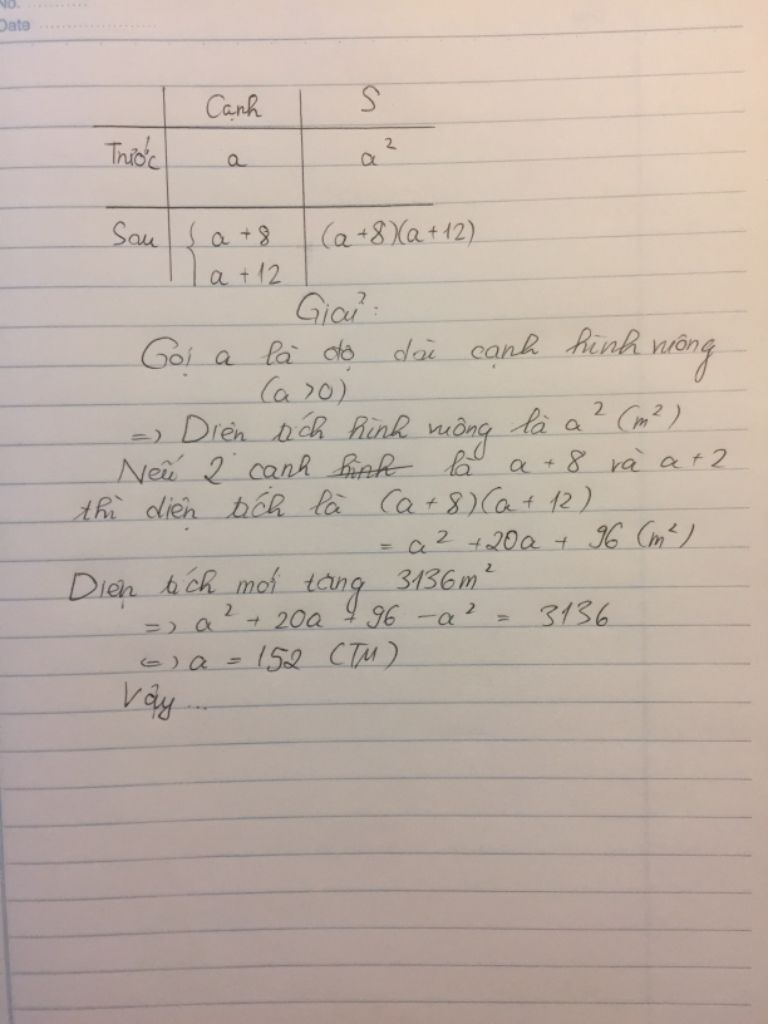 No. ..............
Date ........................
Cạnh S
Trước a a²
Sau { a + 8 (a+8)(a+12)
a + 12
Giải:
Gọi a là độ dài cạnh hình vuông
(a >0)
=> Diện tích hình vuông là a² (m²)
Nếu 2 cạnh hình là a + 8 và a + 2
thì diện tích là (a + 8)(a + 12)
= a² +20a + 96 (m²)
Diện tích mới tăng 3136m²
=> a² + 20a + 96 - a² = 3136
<=> a = 152 (TM)
Vậy ...